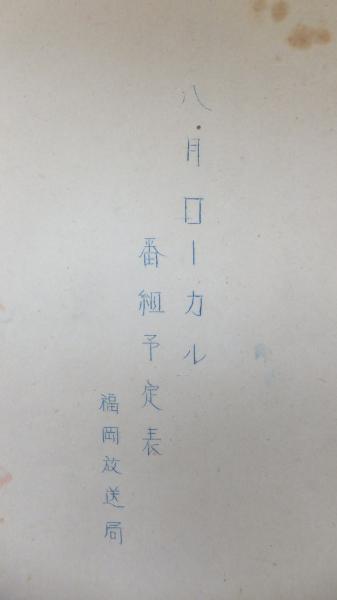 八月ローカル
番組予定表
福岡放送局